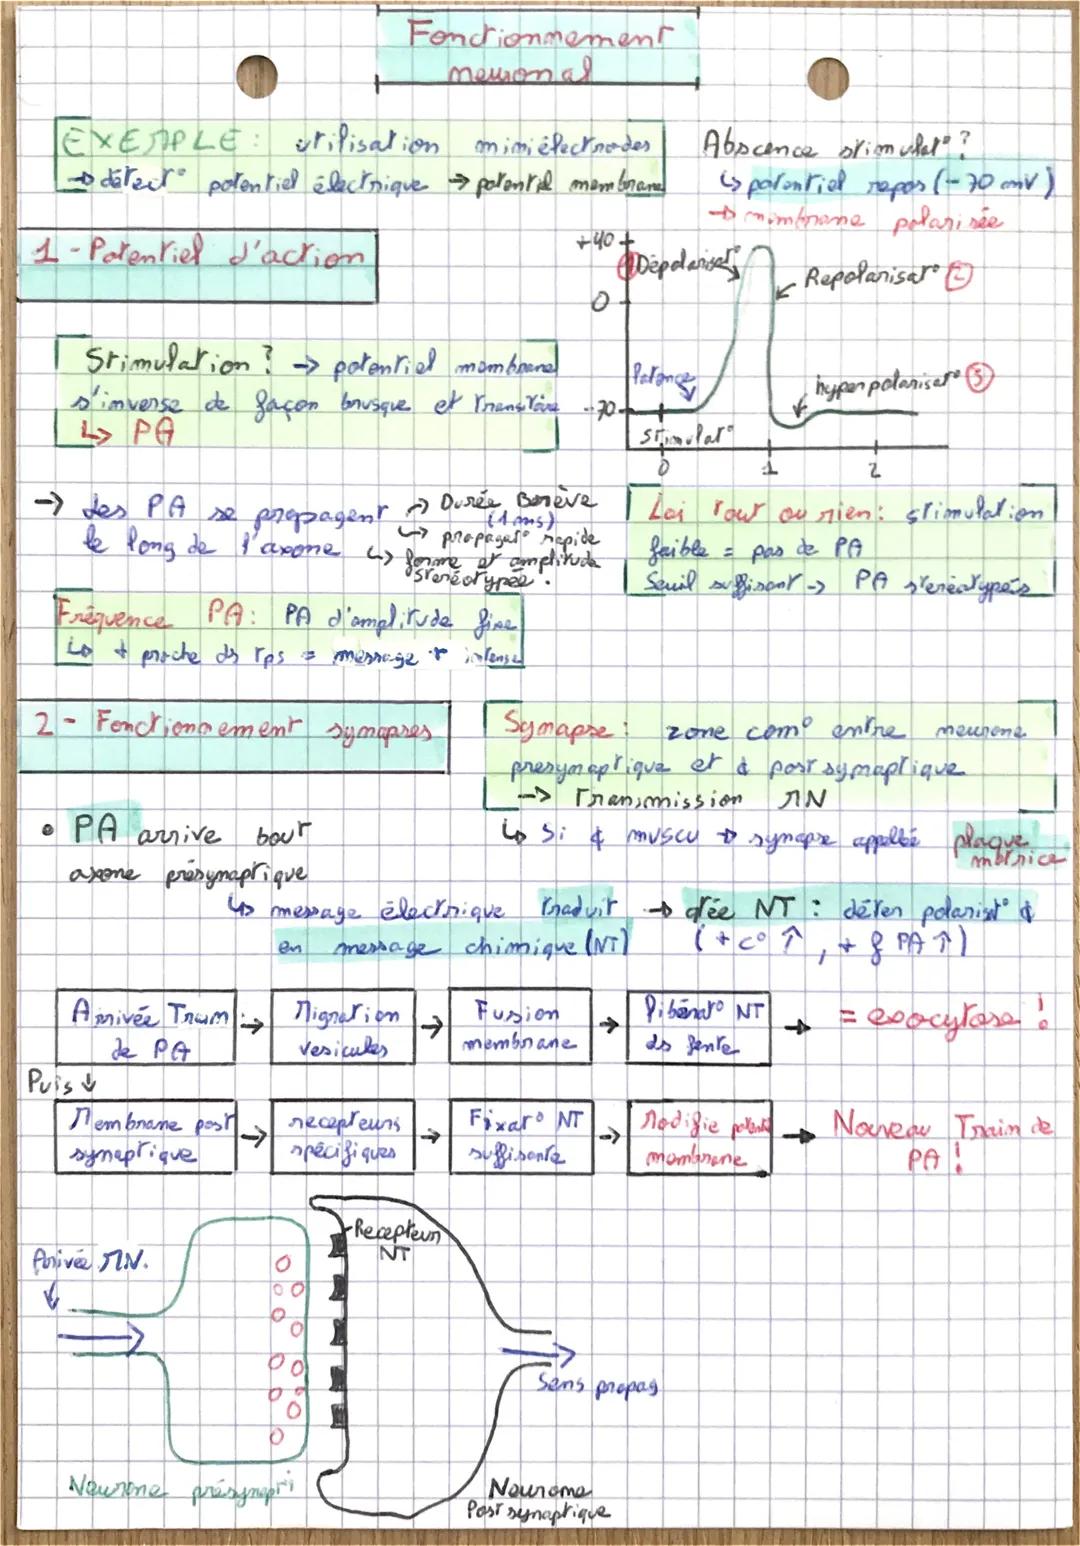 Fonctionnement
neuronal
EXEMPLE : utilisation miniélectrodes
→ détect° potentiel électrique → potentiel membrane
Abscence stimulat° ?
↳ potentiel repos (-70 mV)
→ membrane polarisée
1 - Potentiel d'action
+40
① Dépolarisat°
Repolarisat° ②
0
Latence
hyperpolarisat° ③
-70
stimulat°
0 1 2
Stimulation ? → potentiel membrane
s'inverse de façon brusque et transitoire
↳ PA
→ Les PA se propagent
le long de l'axone
→ Durée Berève
(1 ms)
↪ propagat° rapide
↳ forme et amplitude
stéréotypée.
Loi tout ou rien : stimulation
faible = pas de PA
Seuil suffisant → PA stéréotypés
Fréquence PA : PA d'amplitude fixe
↳ + proche ds tps = message + intense
2 - Fonctionnement synapses
Synapse : zone com° entre neurone
presynaptique et & postsynaptique
→ Transmission MN
↳ Si & muscu → synapse appelée plaque
motrice
• PA arrive bout
axone présynaptique
↳ message électrique traduit
en message chimique (NT)
→ crée NT : déten polarisat° &
(+ c° ↑, + f PA ↑)
Arrivée Train
de PA
→
Migration
vesicules
→
Fusion
membrane
→
libérat° NT
ds fente
→ = exocytose !
Puis ↓
Membrane post
synaptique
→
recepteurs
spécifiques
→
Fixat° NT
suffisante
→
Modifie potentiel
membrane
→ Nouveau Train de
PA !
Arrivée MN.
Recepteur
NT
Sens propag
Neurone présynapti
Neurone
Postsynaptique